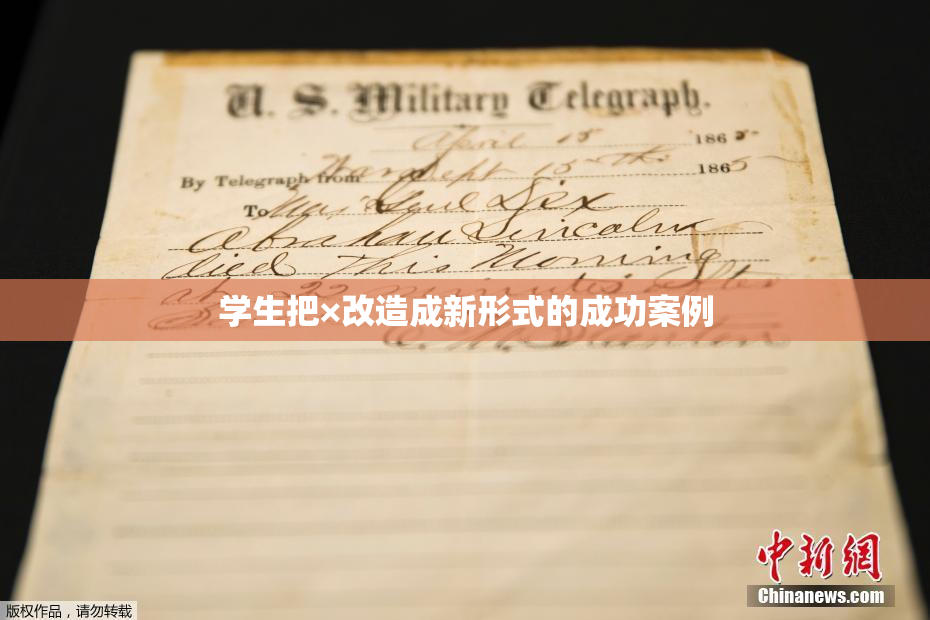 U. S. Military Telegraph.
April 15 1865
By Telegraph from War Dept 15th 1865
To Maj Genl Dix
Abraham Lincoln
died This Morning
at 22 minutes After
学生把×改造成新形式的成功案例
中新網
Chinanews.com
版权作品，请勿转载